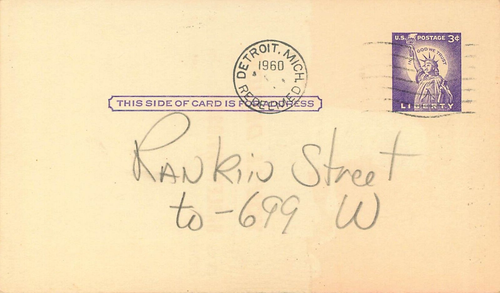 U.S. POSTAGE 3¢
IN GOD WE TRUST
LIBERTY
DETROIT, MICH.
1960
THIS SIDE OF CARD IS FOR ADDRESS
Rankin Street
to - 699 W